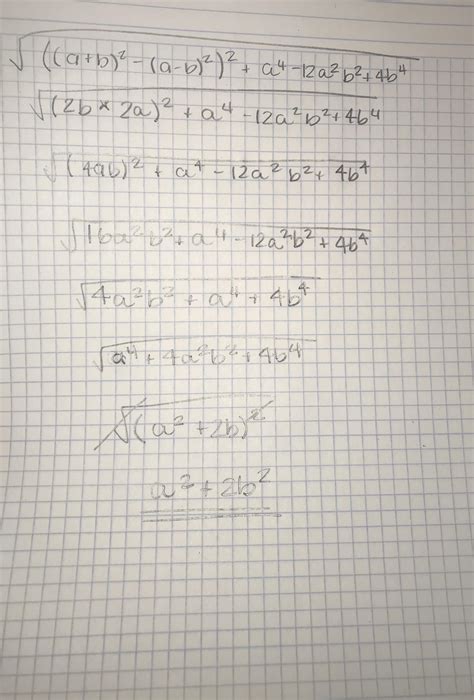 √((a+b)²-(a-b)²)² + a⁴-12a²b²+4b⁴
√(2b × 2a)² + a⁴ -12a²b²+4b⁴
√(4ab)² + a⁴ -12a²b²+ 4b⁴
√16a²b²+a⁴-12a²b²+4b⁴
√4a²b² + a⁴ + 4b⁴
√a⁴+4a²b²+4b⁴
√(a²+2b)²
a²+2b²